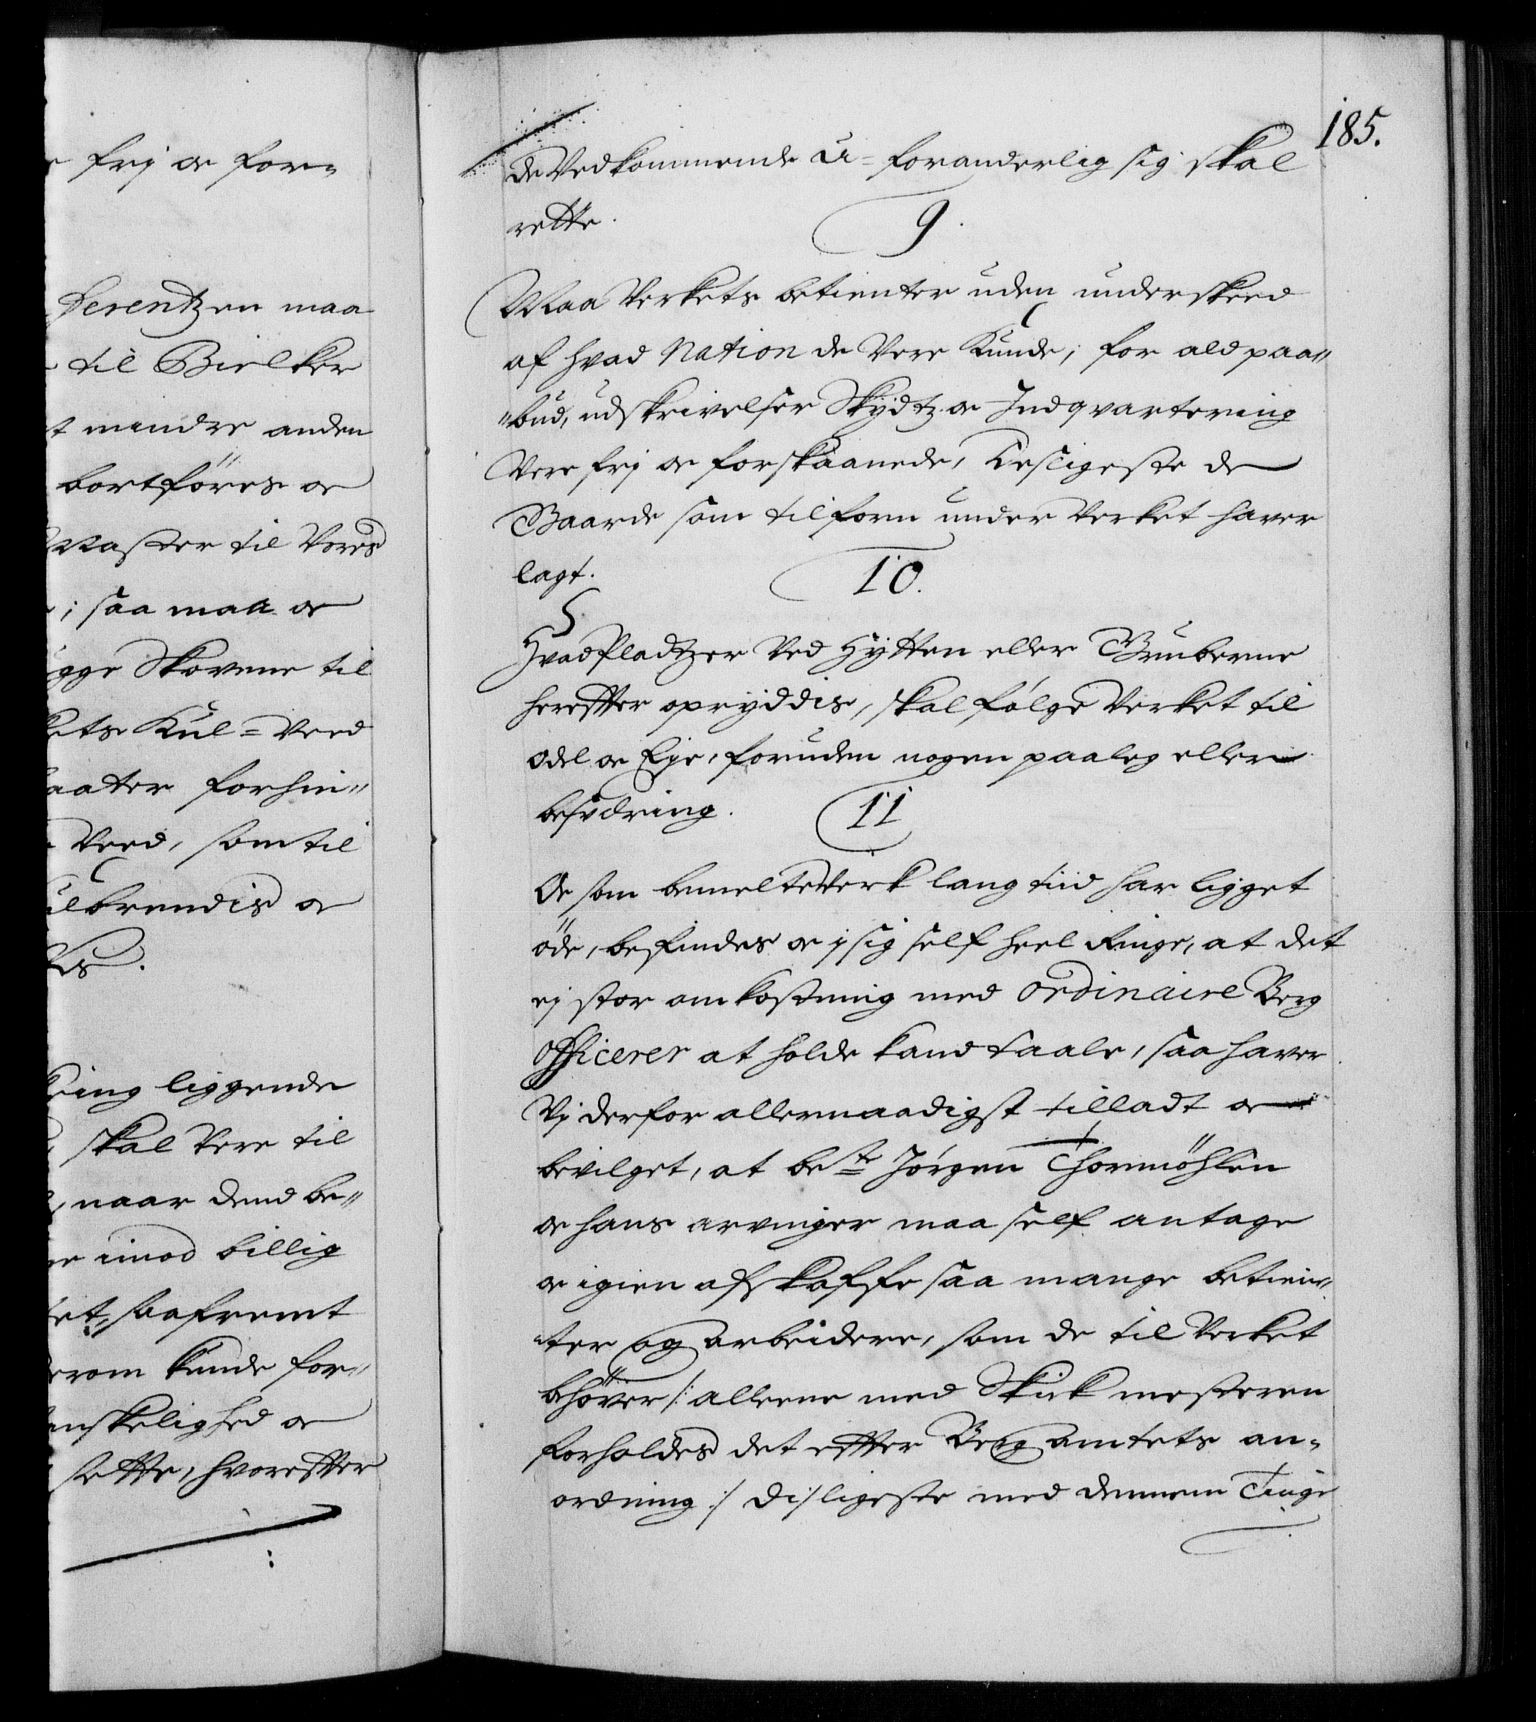 frj oc for=
Serentzen maa
til Bielker
mindre anden
bortföres oc
Master til Vores
; saa maa oc
Skovene til
Kul=Veed
forhin=
Veed, som til
brendis oc
liggende
skal Vere til
naar dend be=
imod billig
saafremt
kunde for=
oc
sette, hvorefter
185.
de Vedkommende u=foranderlig sig skal
rette.
9.
Maa Verkets betienter uden underskeed
af hvad Nation de Vere kunde, for ald paa=
=bud, udskrivelser Skydtz oc Indqvartering
Vere frj oc forskaanede, Desligeste de
Gaarde som tilforn under Verket haver
lagt.
10.
Hvad Pladtzer Ved Hytten eller Gruberne
herefter opryddis, skal følge Verket til
odel oc Eje, foruden nogen paaleg eller
besverding.
11
Oc som bemelte Verk lang tiid har ligget
öde, befindes oc j sig self heel Ringe, at det
ej stor omkostning med ordinaire Berg
Officerer at holde kand taale, saa haver
Vj derfor allernaadigst tilladt oc
bevilget, at bete Jørgen Thormöhlen
oc hans arvinger maa self antage
oc igien afskaffe saa mange betien=
=ter og arbeidere, som de til Verket
behöver /: alleene med Stik mesteren
forholdes det efter Berg amtets an=
ordning :/ disligeste med dennem Tinge